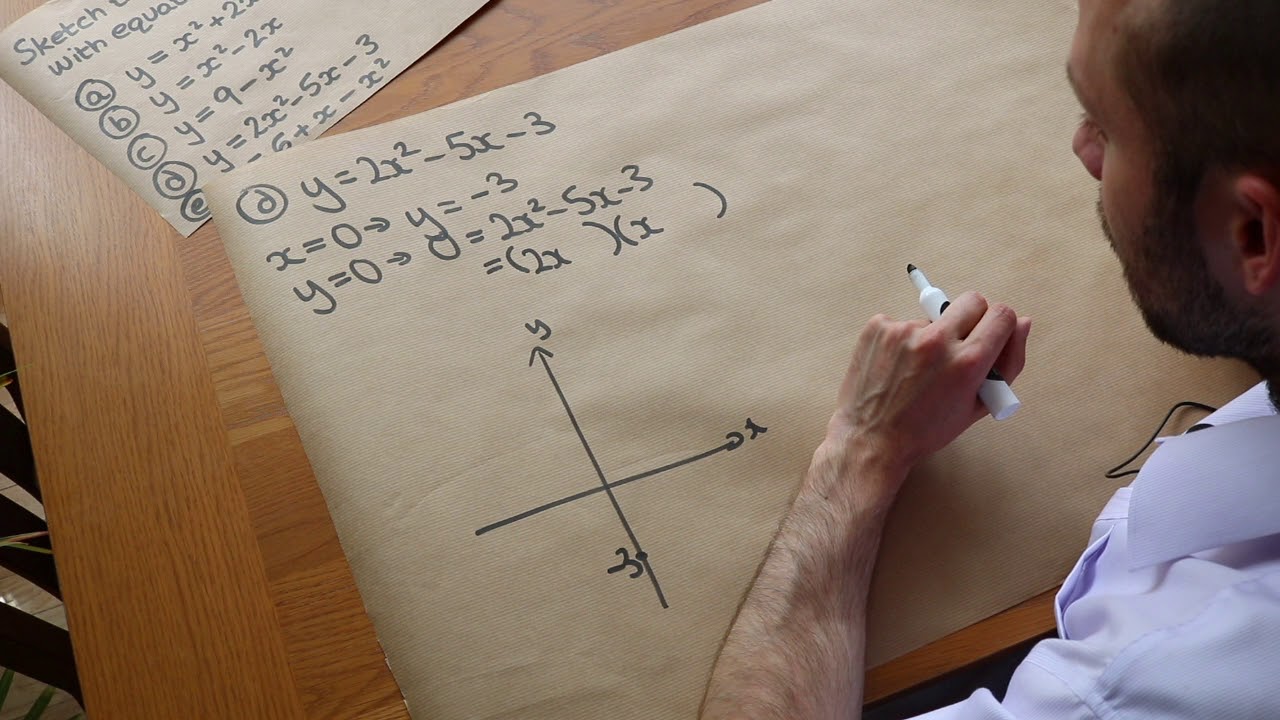 Sketch
with equa
ⓐ y = x² + 2x
ⓑ y = x² - 2x
ⓒ y = 9 - x²
ⓓ y = 2x² - 5x - 3
ⓔ - 6 + x - x²
ⓓ y = 2x² - 5x - 3
x = 0 → y = -3
y = 0 → 0 = 2x² - 5x - 3
= (2x )(x )
y
x
-3